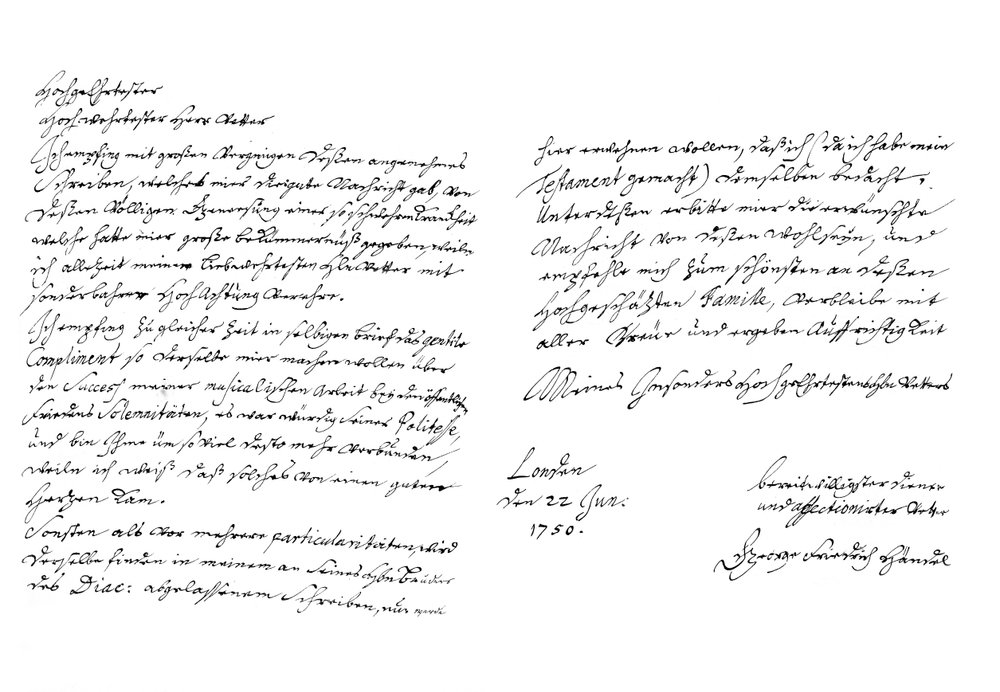 Hochgeehrtester
Hoch wehrtester Herr Vetter
Ich empfing mit großen Vergnügen deßen angenehmes
Schreiben, welches mier die gute Nachricht gab, von
deßen völligen Genersung einer so schwehren Kranckheit
welche hatte mier große bekümmernüß gegeben, weiln
ich allezeit meinen liebwehrtesten Hln Vetter mit
sonderbahrer Hochachtung verehre.
Ich empfing zu gleicher Zeit in selbigen brief das gentile
Compliment so derselbe mier machen wollen über
den Success meiner musicalischen Arbeit bey den öffentlichen
Friedens Solemnitäten, es war würdig seiner Politesse,
und bin Ihme üm so viel desto mehr verbunden,
weiln ich weiß daß solches von einen guten
Hertzen kam.
Sonsten als vor mehrere particularitäten, wird
derselbe finden in meinem an seines Hln Bruder
des Diac: abgelassenem Schreiben, nur werde
hier erwehnen wollen, daß ich (da ich habe mein
Testament gemacht) demselben bedacht,
Unterdeßen erbitte mier die erwünschte
Nachricht von deßen Wohlseyn, und
empfehle mich zum schönsten an deßen
Hochgeschätzten Famille, verbleibe mit
aller Treüe und ergeben Auffrichtigkeit
Meines Insonders Hochgeehrtesten Hln Vetters
Londen
den 22 Jun:
1750.
bereitwilligster diener
und affectionirter Vetter
George Friedrich Händel